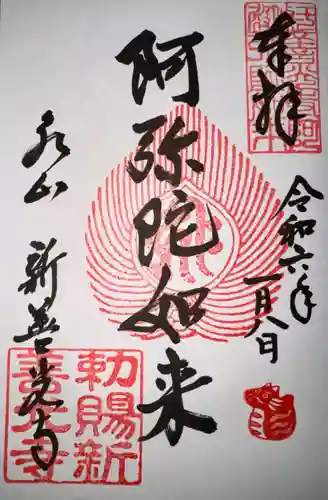 奉拝
令和六年
一月八日
阿弥陀如来
永山
新善光寺
勅賜新
善光寺